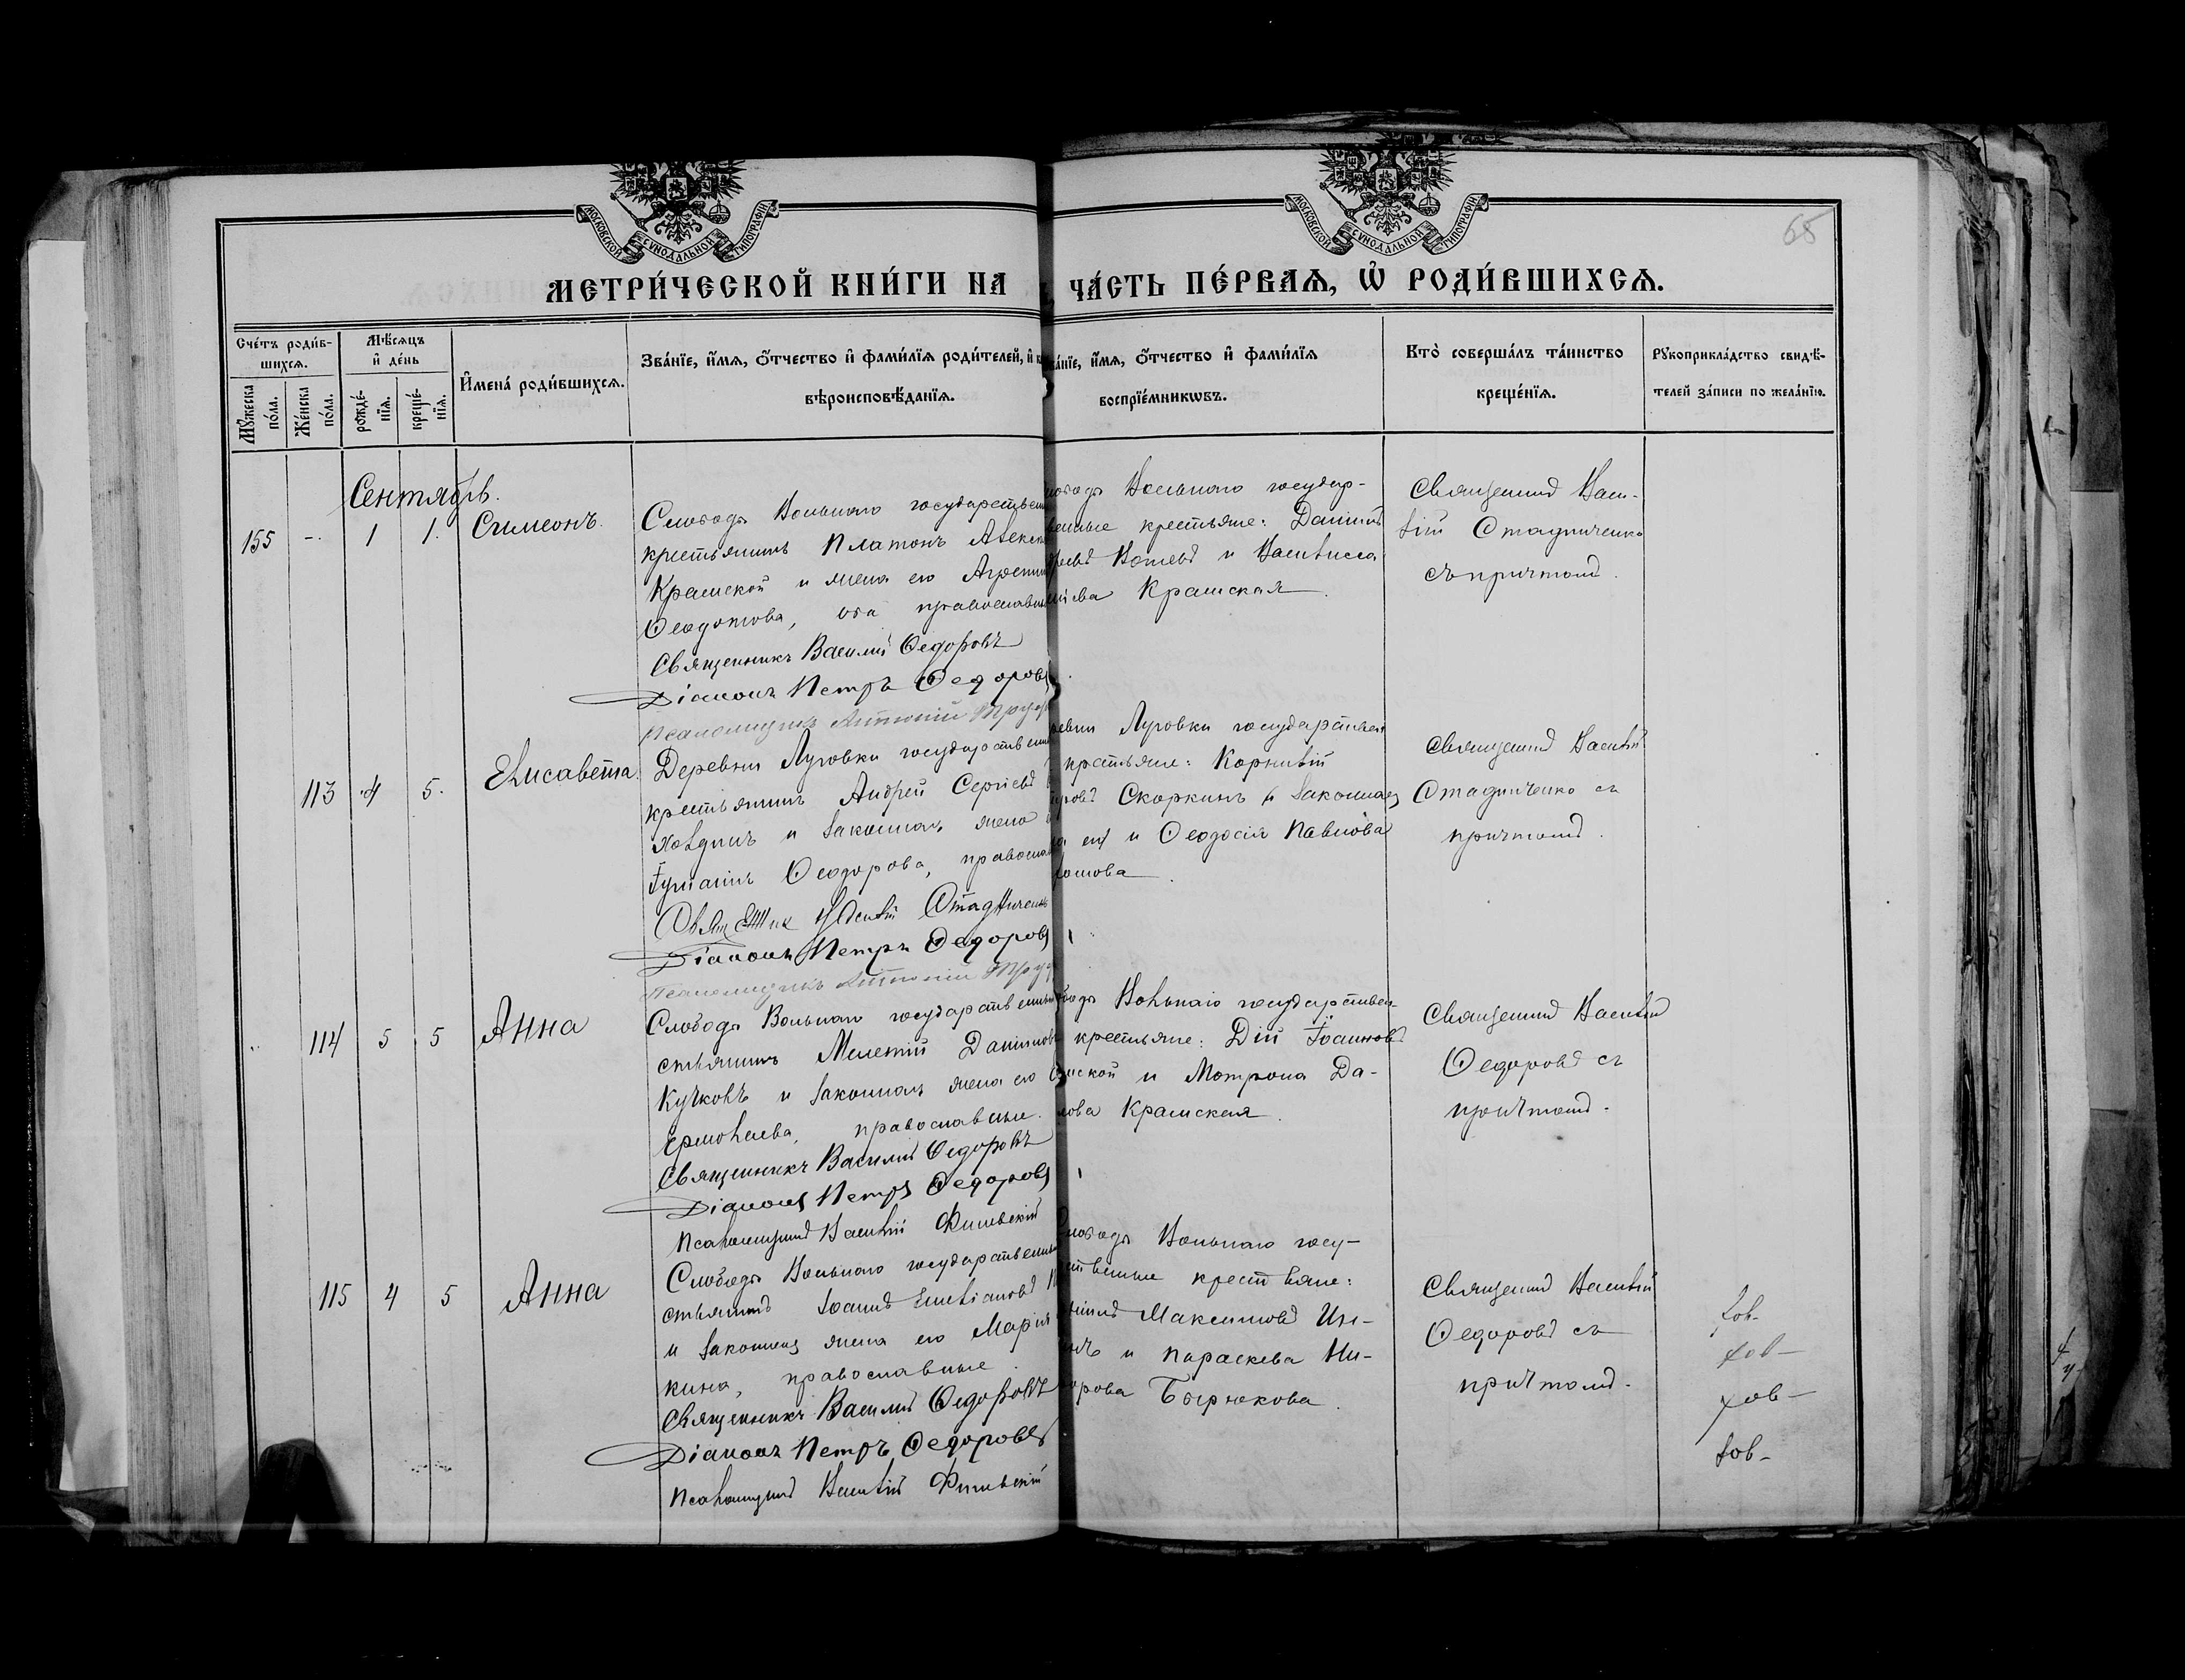 МОСКОВСКОЙ СУНОДАЛЬНОЙ ТИПОГРАФІИ
МОСКОВСКОЙ СУНОДАЛЬНОЙ ТИПОГРАФІИ
65
МЕТРИ́ЧЕСКОЙ КНИ́ГИ НА
ЧА́СТЬ ПЕ́РВАѦ, Ѽ РОДИ́ВШИХСѦ.
Сче́тъ роди́в-
шихсѧ.
Мꙋжеска
по́ла.
Же́нска
по́ла.
Мѣ́сѧцъ
и҆ де́нь
рожде́-
нїѧ.
креще́-
нїѧ.
И҆мена̀ роди́вшихсѧ.
Зва́нїе, и҆́мѧ, ѻ҆́тчество и҆ фами́лїѧ роди́телей, и҆
вѣроисповѣ́данїѧ.
ва́нїе, и҆́мѧ, ѻ҆́тчество и҆ фами́лїѧ
воспрїе́мникѡвъ.
Кто̀ соверша́лъ та́инство
креще́нїѧ.
Рꙋкоприкла́дство свидѣ́-
телей за́писи по жела́нїю.
Сентябрь.
155 - 1 1. Симеонъ.
Слободы Вольнаго государствен
крестьянинъ Платонъ Алекс
Крамской и жена его Агрепин
Феодотова, оба православн
Священникъ Василій Федоровъ
Діаконъ Петръ Федоровъ
Псаломщикъ Антоній Труф
лободы Вольнаго государ-
венные крестьяне: Даніилъ
Котевъ и Василисса
Крамская.
Священникъ Васи-
лій Стадниченко
съ причтомъ.
113 4 5. Елисавета.
Деревни Луговки государствен
крестьянинъ Андрей Сергіевъ
и законная жена
Федорова, правосла
Священник Василій Стадниченк
Діаконъ Петръ Федоровъ
Псаломщикъ Антоній Труф
ревни Луговки государствен
крестьяне: Корнилій
Скоркинъ и законная
на его и Феодосія Павлова
Священникъ Василій
Стадниченко съ
причтомъ.
114 5 5 Анна
Слободы Вольнаго государственны
стьянинъ Мелетій Даниилов
Кучковъ и законная жена его
Ермолаева, православные.
Священникъ Василій Федоровъ
Діаконъ Петръ Федоровъ
Псаломщикъ Василій Филевскій
боды Вольнаго государствен-
крестьяне: Дій Іоанновъ
мской и Мотрона Да-
лова Крамская.
Священникъ Василій
Федоровъ съ
причтомъ.
115 4 5 Анна
Слободы Вольнаго государственны
стьянинъ Іоаннъ Емеліановъ
и законная жена его Марія
кина, православные.
Священникъ Василій Федоровъ
Діаконъ Петръ Федоровъ
Псаломщикъ Василій Филевскій
лободы Вольнаго госу-
ственные крестьяне:
Максимовъ
и Параскева Ни-
форова Бырюкова.
Священникъ Василій
Федоровъ съ
причтомъ.